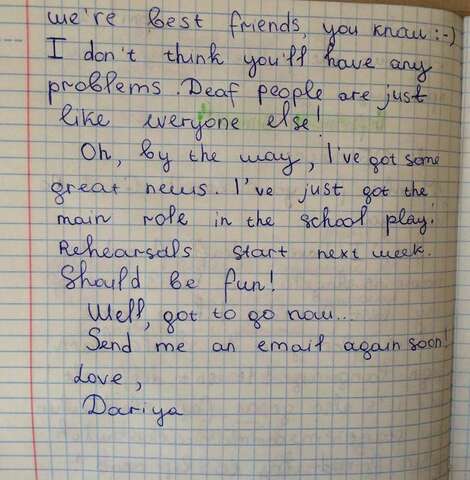 we're best friends, you know :-)
I don't think you'll have any
problems. Deaf people are just
like everyone else!
Oh, by the way, I've got some
great news. I've just got the
main role in the school play.
Rehearsals start next week.
Should be fun!
Well, got to go now...
Send me an email again soon!
Love,
Dariya